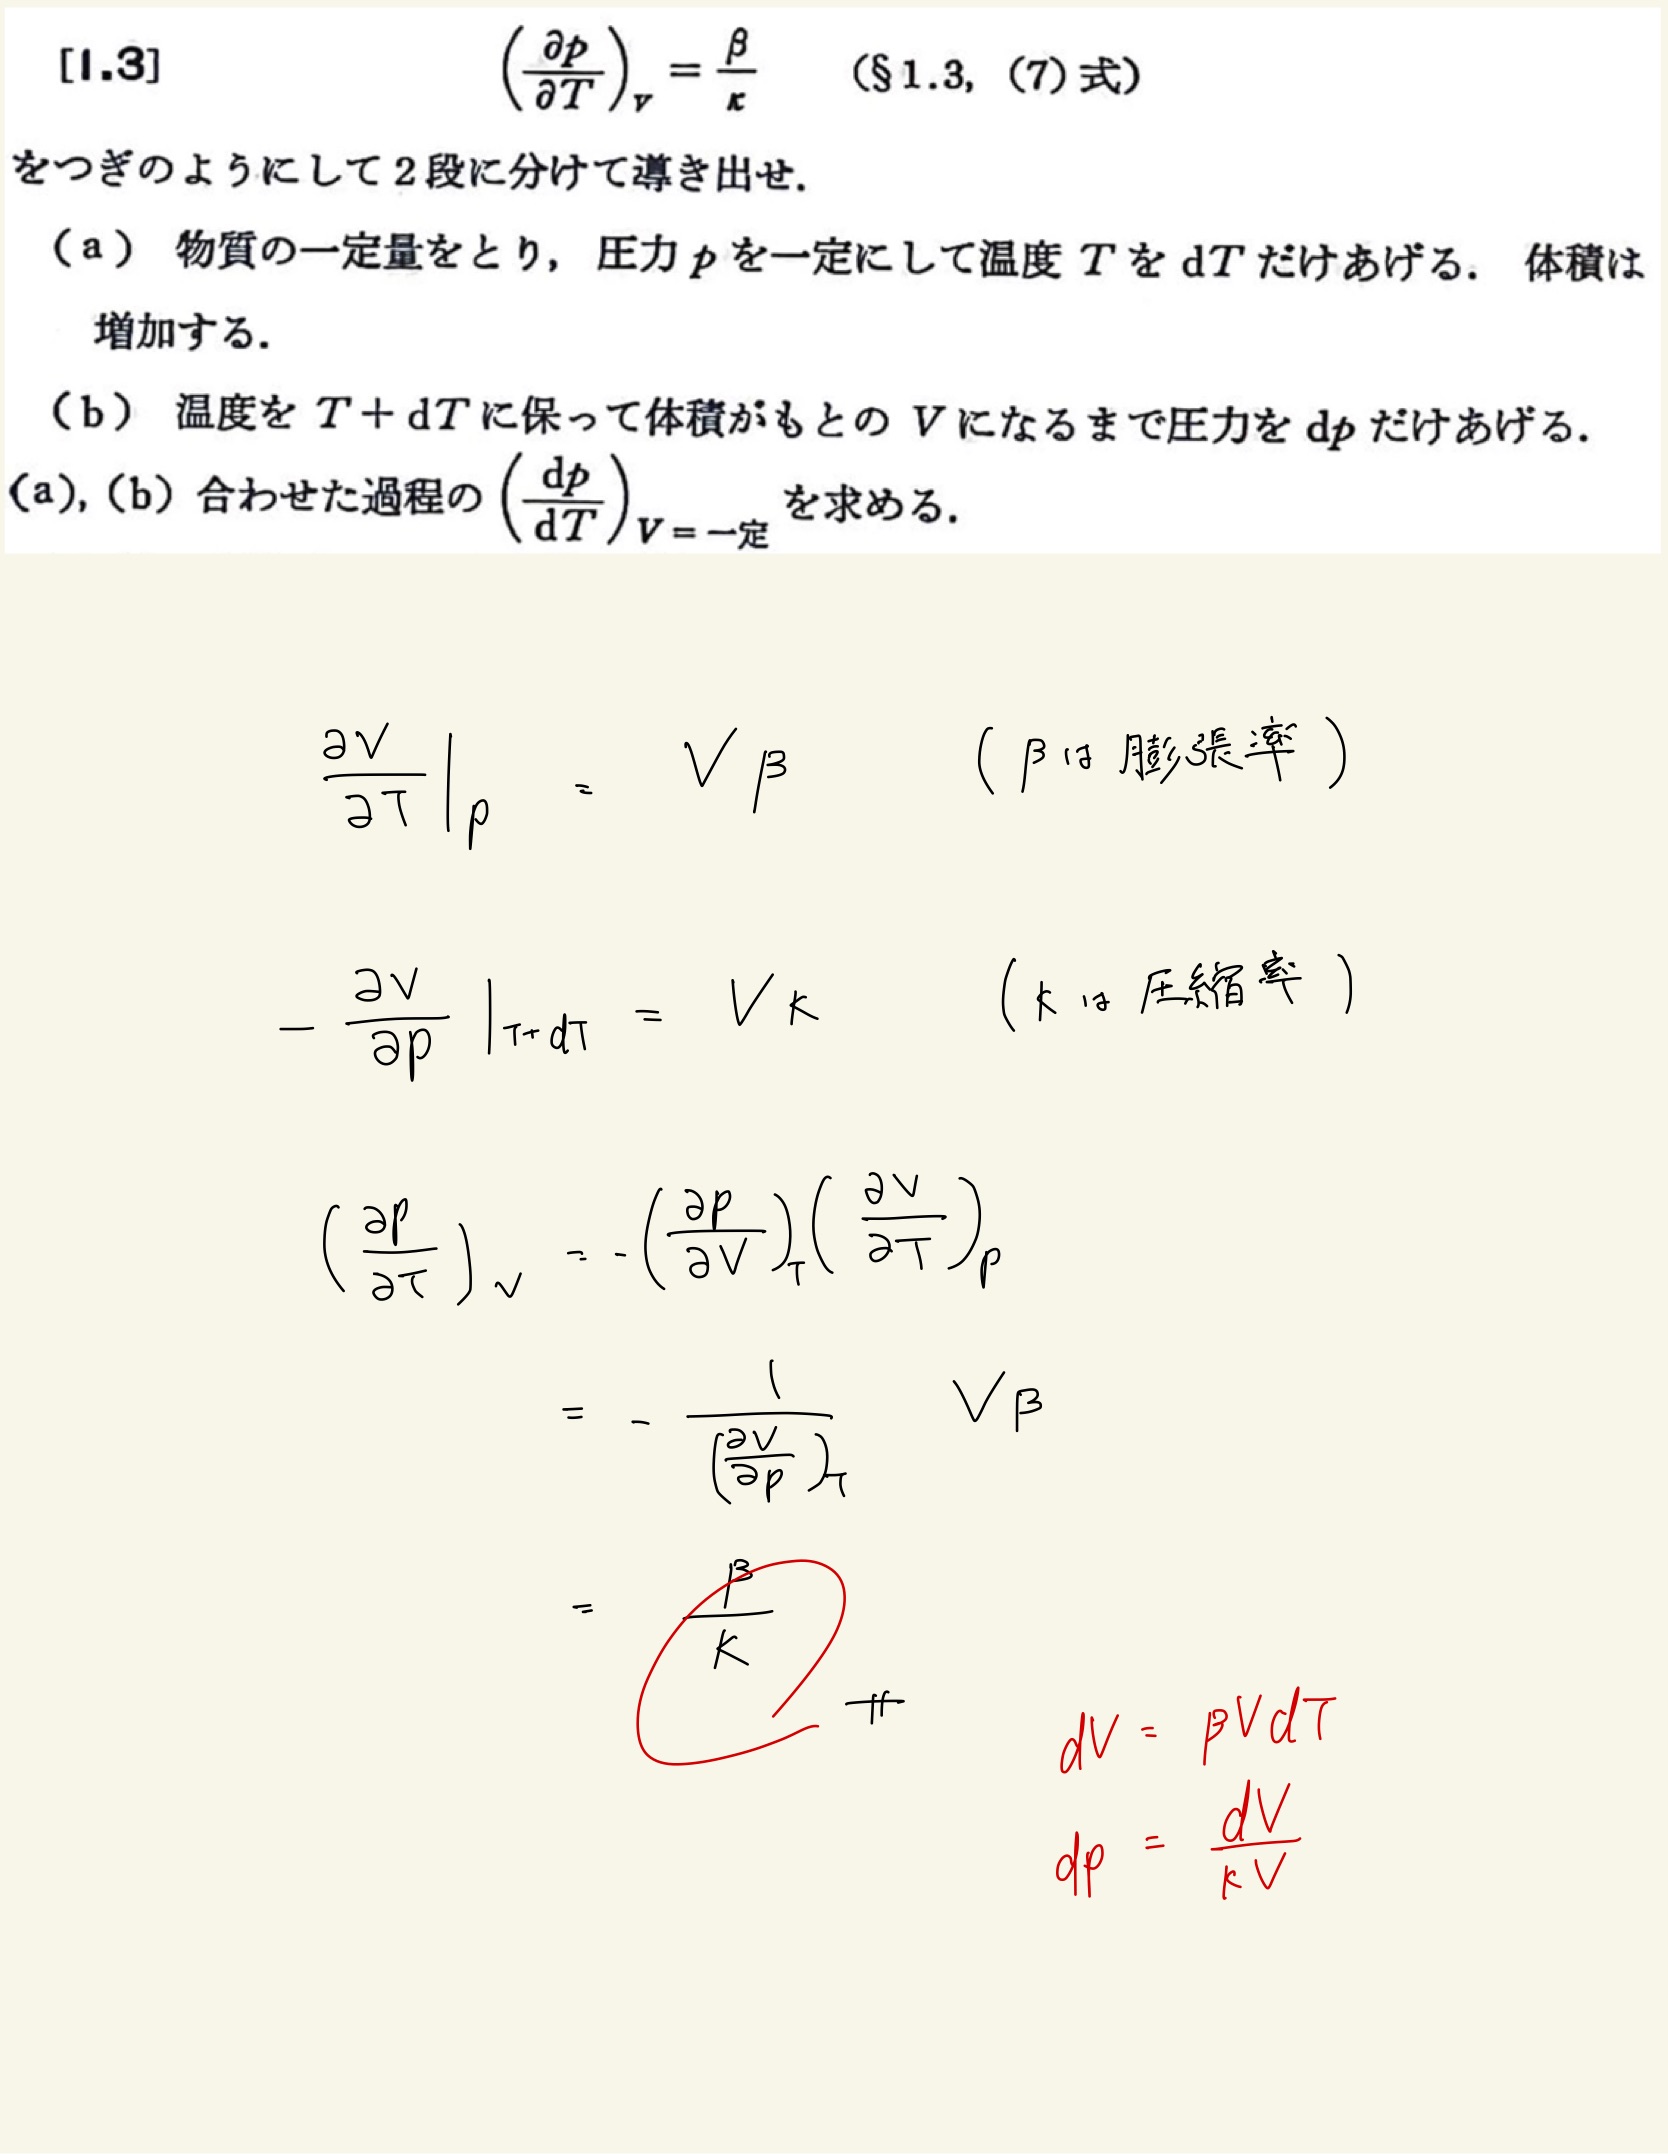 [1.3] (∂p/∂T)_V = β/κ (§1.3, (7)式)
をつぎのようにして2段に分けて導き出せ.
(a) 物質の一定量をとり, 圧力 p を一定にして温度 T を dT だけあげる. 体積は
増加する.
(b) 温度を T+dT に保って体積がもとの V になるまで圧力を dp だけあげる.
(a), (b) 合わせた過程の (dp/dT)_{V=一定} を求める.
∂V/∂T|_p = Vβ (βは膨張率)
- ∂V/∂p|_{T+dT} = Vκ (κは圧縮率)
(∂p/∂T)_V = -(∂p/∂V)_T (∂V/∂T)_p
= - 1/(∂V/∂p)_T Vβ
= β/κ
dV = βVdT
dp = dV/κV